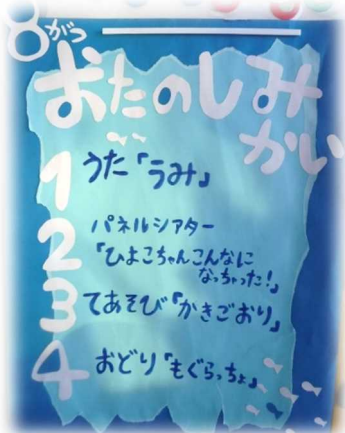 8がつ
おたのしみ
かい
1 うた「うみ」
2 パネルシアター
「ひよこちゃんこんなに
なっちゃった!」
3 てあそび「かきごおり」
4 おどり「もぐらっちょ」